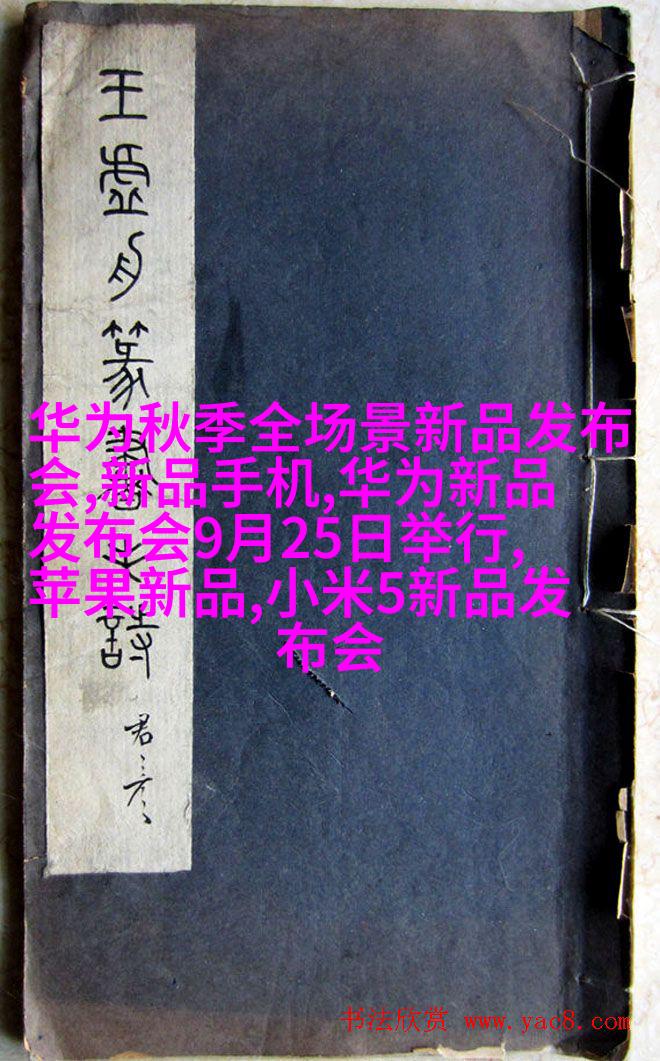 王虛舟篆書詩
华为秋季全场景新品发布
会,新品手机,华为新品
发布会9月25日举行,
苹果新品,小米5新品发
布会
书法欣赏 www.yac8.com